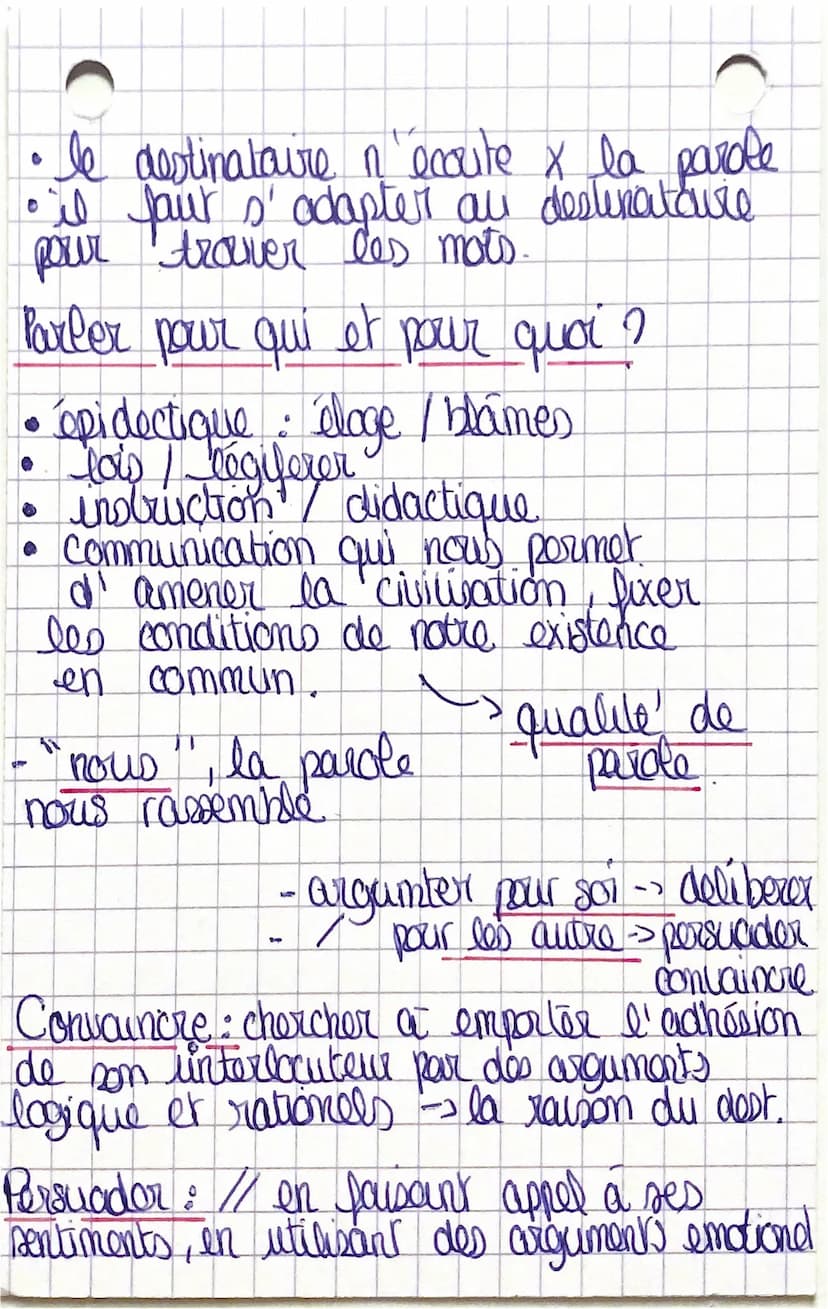 • le destinataire n'écoute x la parole
• il faut s'adapter au destinataire
pour trouver les mots.
Parler pour qui et pour quoi ?
• épidectique : éloge / blâmes
• lois / légiferer
• instruction / didactique
• communication qui nous permet
d'amener la civilisation, fixer
les conditions de notre existence
en commun.
↘ qualité de
parole.
- "nous", la parole
nous rassemble
- argumter pour soi -> déliberer
- / pour les autre -> persuader
convaincre
Convaincre : chercher à emporter l'adhésion
de son interlocuteur par des arguments
logique et rationels -> la raison du dest.
Persuader : // en faisant appel à ses
sentiments, en utilisant des arguments emotionel